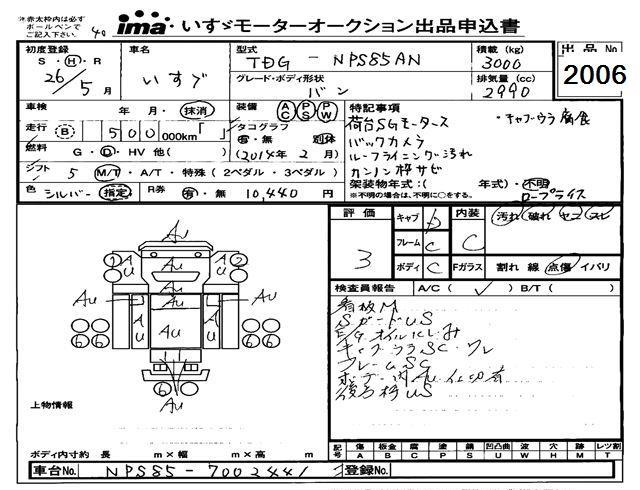 ※赤太枠内は必ず
ボールペンで
ご記入下さい
40
ima いすゞモーターオークション出品申込書
初度登録
S・H・R
26年 5月
車名
いすゞ
型式
TDG - NPS85AN
グレード・ボディ形状
バン
積載 (kg)
3000
排気量 (cc)
2990
出品No
2006
車検 年 月・抹消
走行 B 500 000km「 」
燃料 G・D・HV 他( )
シフト 5 M/T・A/T・特殊(2ペダル・3ペダル)
色 シルバー 指定 R券 有・無 10,440円
装備 AC PS PW
タコグラフ
有・無 別体
(2014年 2月)
特記事項
荷台SGモータース ・キャブウラ腐食
バックカメラ
ルーフライニング汚れ
カンノン枠サビ
架装物年式:( 年式)・不明
※不明の場合は、不明に○をする。
ロープライス
評価
3
キャブ b
フレーム C
ボディ C
内装 C
汚れ 破れ
Fガラス 割れ 線 点傷 イバリ
検査員報告 A/C( ✓ ) B/T( )
看板M
SガードUS
E/Gオイルにじみ
キャブウラSC・ワレ
フレームSC
ボデー内AU仕切有
後方枠US
Au
1 A U Au A U 2
Au
Au
A U Au A U
6 6 Au 6 6
6
Au
上物情報
ボディ内寸約 長 m×幅 m×高 m
記号 傷 板金 腐 塗 錆 凹凸曲 波 穴 跡 レツ割
A B C P S U W H M T
車台No. NPS85-7002441
登録No.